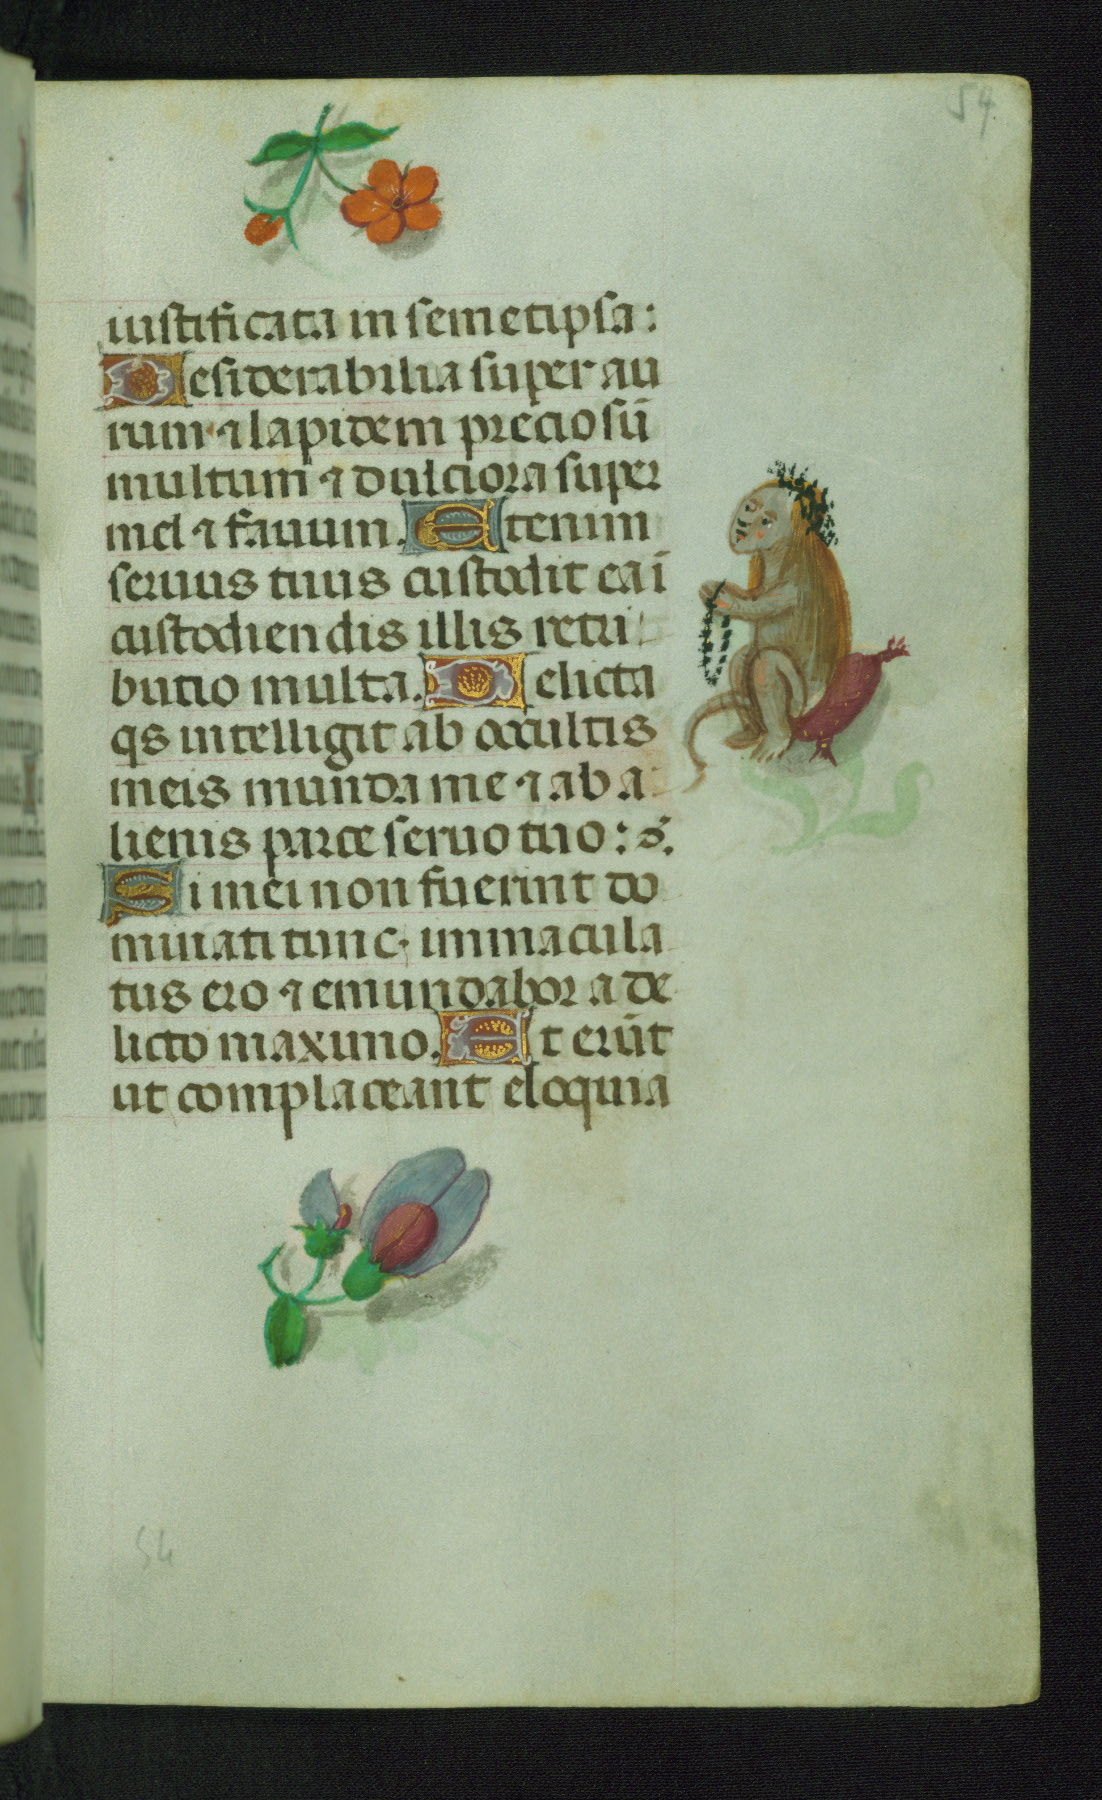 54.
iustificata in semetipsa:
Desiderabilia super au
rum ⁊ lapidem preciosū
multum ⁊ dulciora super
mel ⁊ fauum. Etenim
seruus tuus custodit ea ī
custodiendis illis retri
butio multa. Delicta
qs intelligit ab occultis
meis munda me ⁊ ab a
lienis parce seruo tuo:
Si mei non fuerint do
minati tunc immacula
tus ero ⁊ emundabor a de
licto maximo. Et erūt
ut complaceant eloquia
54